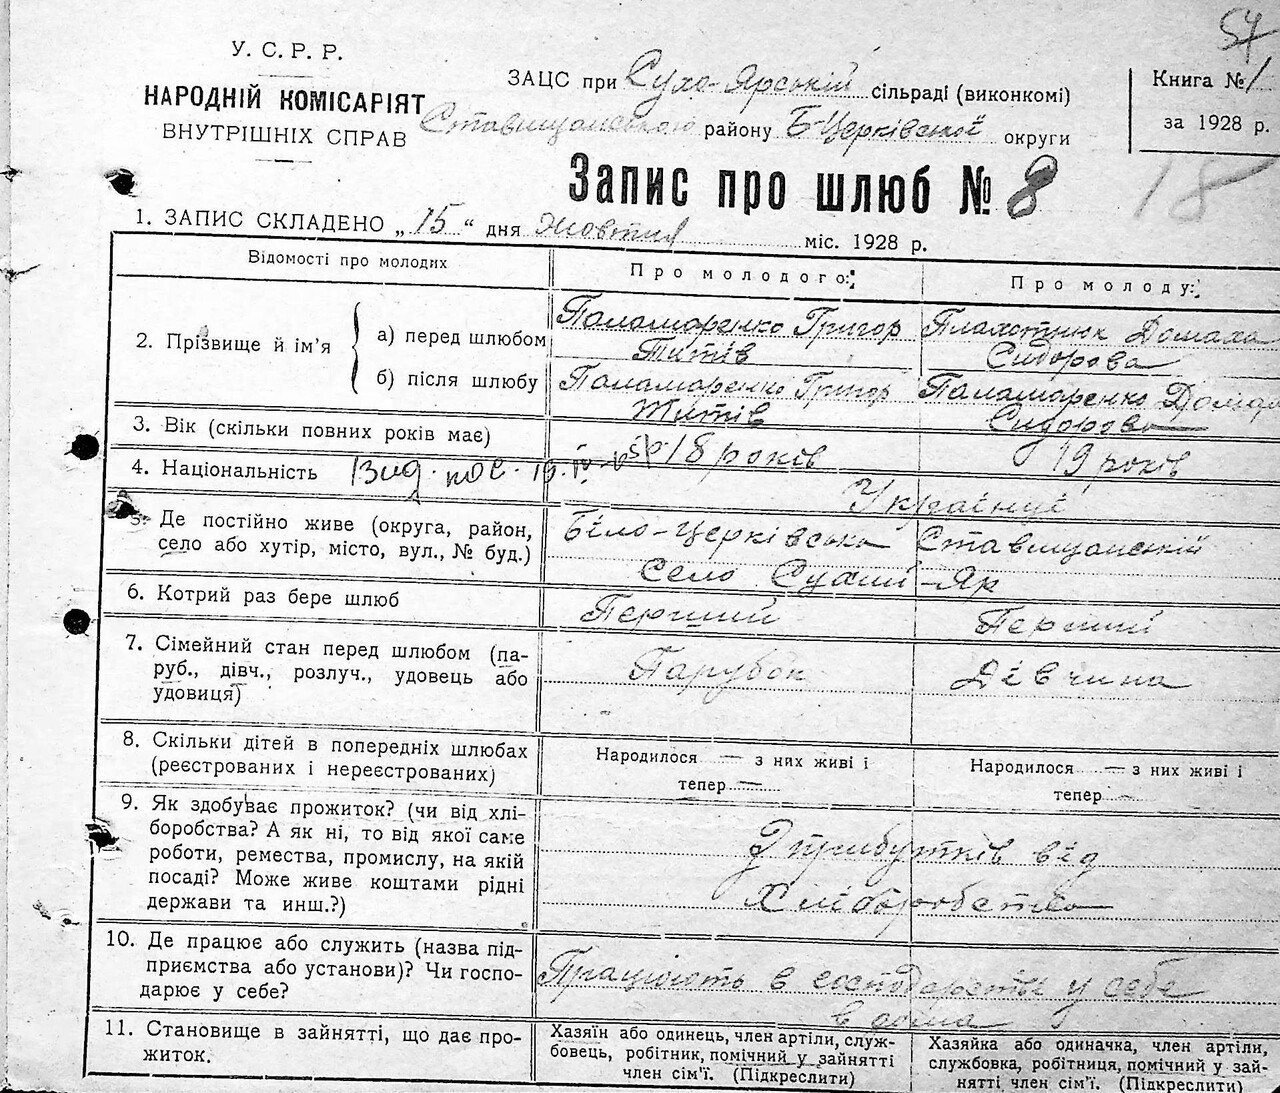 54
У. С. Р. Р.
НАРОДНІЙ КОМІСАРІЯТ
ВНУТРІШНІХ СПРАВ
ЗАЦС при Сухо-Ярській сільраді (виконкомі)
Ставищанського району Б-Церківської округи
Книга № 1
за 1928 р.
Запис про шлюб № 8
18
1. ЗАПИС СКЛАДЕНО „15“ дня Жовтня міс. 1928 р.
Відомості про молодих
Про молодого:
Про молоду:
2. Прізвище й ім'я
а) перед шлюбом
Паламаренко Григор
Титів
Плахотнюк Домаха
Сидорова
б) після шлюбу
Паламаренко Григор
Титів
Паламаренко Домах
Сидорова
3. Вік (скільки повних років має)
18 років
19 років
4. Національність
Вид. пос.
Українці
5. Де постійно живе (округа, район,
село або хутір, місто, вул., № буд.)
Біло-Церківська Ставищанський
Село Сухий-Яр
6. Котрий раз бере шлюб
Перший
Перший
7. Сімейний стан перед шлюбом (па-
руб., дівч., розлуч., удовець або
удовиця)
Парубок
Дівчина
8. Скільки дітей в попередніх шлюбах
(реєстрованих і нереєстрованих)
Народилося — з них живі і
тепер —
Народилося — з них живі і
тепер —
9. Як здобуває прожиток? (чи від хлі-
боробства? А як ні, то від якої саме
роботи, ремества, промислу, на якій
посаді? Може живе коштами рідні
держави та инш.?)
З прибутків від
Хліборобства
10. Де працює або служить (назва під-
приємства або установи)? Чи госпо-
дарює у себе?
Працюють в господарстві у себе
в дома
11. Становище в зайнятті, що дає про-
житок.
Хазяїн або одинець, член артілі, служ-
бовець, робітник, помічний у зайнятті
член сім'ї. (Підкреслити)
Хазяйка або одиначка, член артіли,
службовка, робітниця, помічний у зай-
нятті член сім'ї. (Підкреслити)